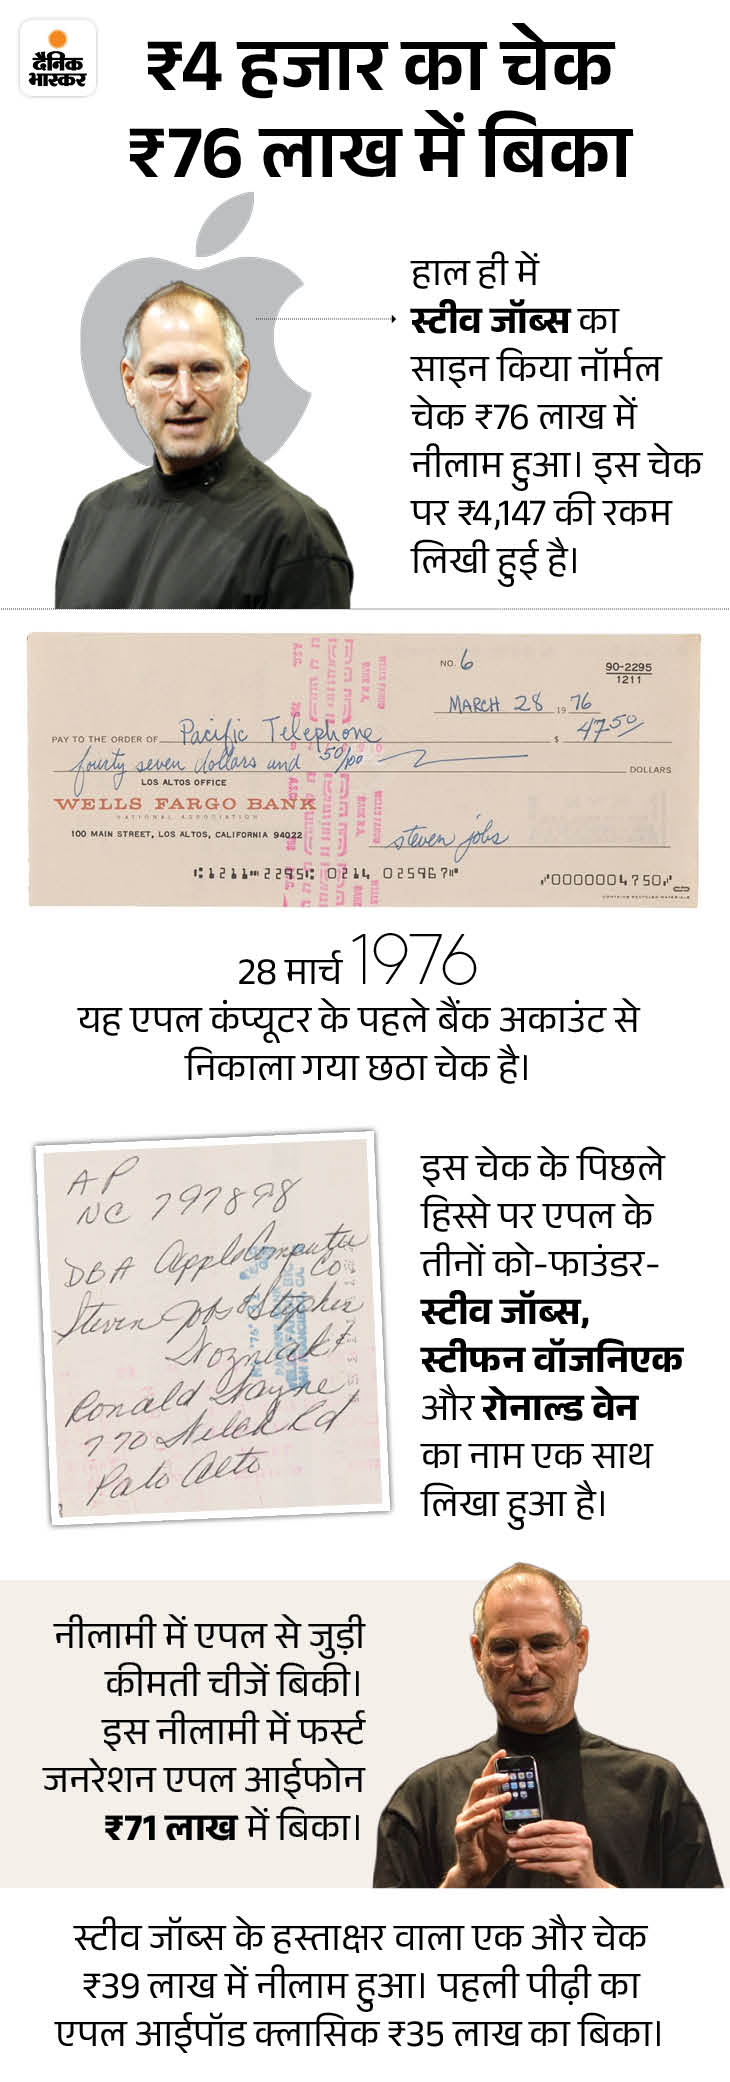 दैनिक
भास्कर
₹4 हजार का चेक
₹76 लाख में बिका
हाल ही में
स्टीव जॉब्स का
साइन किया नॉर्मल
चेक ₹76 लाख में
नीलाम हुआ। इस चेक
पर ₹4,147 की रकम
लिखी हुई है।
NO. 6
90-2295
1211
MARCH 28 19 76
PAY TO THE ORDER OF Pacific Telephone $ 47.50
fourty seven dollars and 50/100 DOLLARS
LOS ALTOS OFFICE
WELLS FARGO BANK
NATIONAL ASSOCIATION
100 MAIN STREET, LOS ALTOS, CALIFORNIA 94022
steven jobs
⑆1211⑉2295⑆ 0214 025967⑈ ⑇0000004750⑇
CONTAINS RECYCLED MATERIALS
28 मार्च 1976
यह एपल कंप्यूटर के पहले बैंक अकाउंट से
निकाला गया छठा चेक है।
AP
NC 797898
DBA Apple Computer
Co
Steven Jobs & Stephen
Wozniak &
Ronald Wayne
770 Welch Rd
Palo Alto
इस चेक के पिछले
हिस्से पर एपल के
तीनों को-फाउंडर-
स्टीव जॉब्स,
स्टीफन वॉजनिएक
और रोनाल्ड वेन
का नाम एक साथ
लिखा हुआ है।
नीलामी में एपल से जुड़ी
कीमती चीजें बिकी।
इस नीलामी में फर्स्ट
जनरेशन एपल आईफोन
₹71 लाख में बिका।
स्टीव जॉब्स के हस्ताक्षर वाला एक और चेक
₹39 लाख में नीलाम हुआ। पहली पीढ़ी का
एपल आईपॉड क्लासिक ₹35 लाख का बिका।